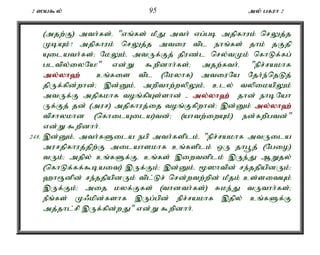 2 ஸயகூல் 95 அல் பகரா 2
(அதற்கு) அவர்கள், "எங்கள் மீது அவர் எப்படி அதிகாரம் செலுத்த
முடியும்? அதிகாரம் செலுத்த அவரை விட நாங்கள் தாம் தகுதி
யுடையவர்கள்; மேலும், அவருக்குத் திரண்ட செல்வமும் கொடுக்கப்
படவில்லையே" என்று கூறினார்கள்; அதற்கவர், "நிச்சயமாக
அல்லாஹ் உங்களை விட (மேலாக) அவரையே தேர்ந்தெடுத்
திருக்கின்றான்; இன்னும், அறிவாற்றலிலும், உடல் வலிமையிலும்
அவருக்கு அதிகமாக வழங்கியுள்ளான் - அல்லாஹ் தான் நாடியோ
ருக்குத் தன் (அரச) அதிகாரத்தை வழங்குகிறான்; இன்னும் அல்லாஹ்
விசாலமான (கொடையுடைய)வன்; (யாவற்றையும்) நன்கறிபவன்"
என்று கூறினார்.
248. இன்னும், அவர்களுடைய நபி அவர்களிடம், "நிச்சயமாக அவருடைய
அரசதிகாரத்திற்கு அடையாளமாக உங்களிடம் ஒரு தாபூத் (பேழை)
வரும்; அதில் உங்களுக்கு, உங்கள் இறைவனிடம் இருந்து ஆறுதல்
(கொடுக்கக்கூடியவை) இருக்கும்; இன்னும், மூஸாவின் சந்ததியினரும்;
ஹாரூனின் சந்ததியினரும் விட்டுச் சென்றவற்றின் மீதம் உள்ளவையும்
இருக்கும்; அதை மலக்குகள் (வானவர்கள்) சுமந்து வருவார்கள்;
நீங்கள் முஃமின்களாக இருப்பின் நிச்சயமாக இதில் உங்களுக்கு
அத்தாட்சி இருக்கின்றது" என்று கூறினார்.